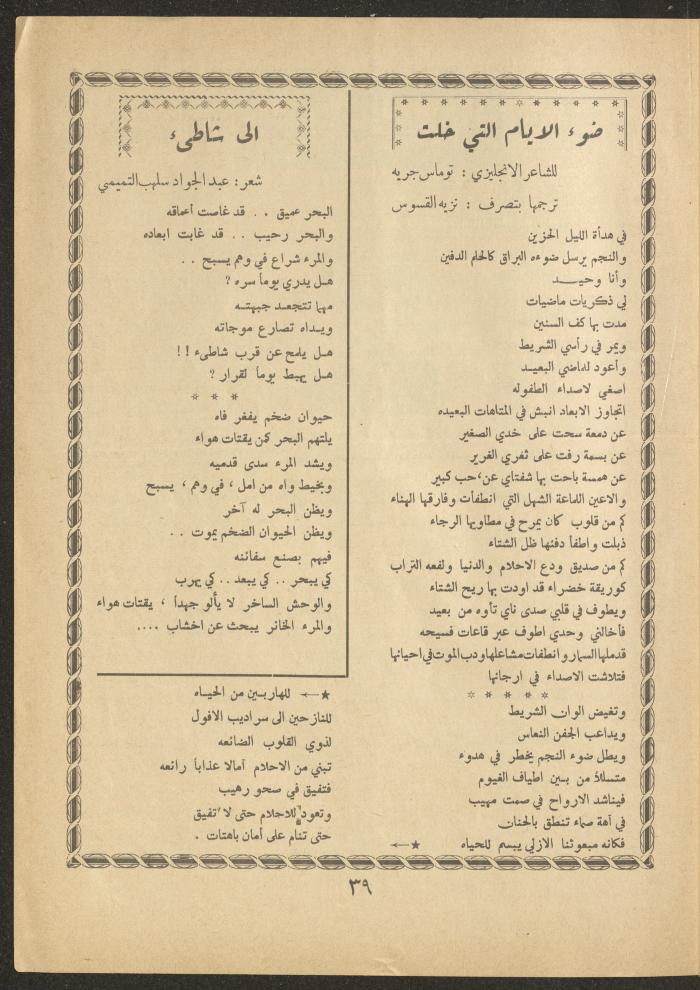 ضوء الايام التي خلت
للشاعر الانجليزي : توماس جريه
ترجمها بتصرف : نزيه القسوس
في هدأة الليل الحزين
والنجم يرسل ضوءه البراق كالحلم الدفين
وأنا وحيــد
لي ذكريات ماضيات
مدت بها كف السنين
ويمر في رأسي الشريط
وأعود للماضي البعيـد
اصغي لاصداء الطفوله
اتجاوز الابعاد انبش في المتاهات البعيده
عن دمعة سحت على خدي الصغير
عن بسمة رفت على ثغري الغرير
عن همسة باحت بها شفتاي عن حب كبير
والاعين اللماعة الشهل التي انطفأت وفارقها الهناء
كم من قلوب كان يمرح في مطاويها الرجاء
ذبلت واطفأ دفئها ظل الشتاء
كم من صديق ودع الاحلام والدنيا ولفعه التراب
كوريقة خضراء قد اودت بها ريح الشتاء
ويطوف في قلبي صدى ناي تأوه من بعيد
فأخالني وحدي اطوف عبر قاعات فسيحه
قد ملها السمار وانطفات مشاعلها ودب الموت في احيائها
فتلاشت الاصداء في ارجائها
* * * * *
وتغيض الوان الشريط
ويداعب الجفن النعاس
ويطل ضوء النجم يخطر في هدوء
متسللاً من بـين اطياف الغيوم
فيناشد الارواح في صمت مهيب
في آهة صماء تنطق بالحنان
فكانه مبعوثنا الازلي يبسم للحياه ★←
★← للهاربـين من الحيـاه
للنازحين الى سراديب الافول
لذوي القلوب الضائعه
تبني من الاحلام آمالا عذاباً رائعه
فتفيق في صحو رهيب
وتعود للاحلام حتى لا تفيق
حتى تنام على أمان باهتات .
الى شاطىء
شعر : عبد الجواد سلهب التميمي
البحر عميق . . قد غاصت أعماقه
والبحر رحيب . . قد غابت ابعاده
والمرء شراع في وهم يسبح . .
هـل يدري يوماً سره ؟
مهما تتجعـد جبهتـه
ويـداه تصارع موجاته
هـل يلمح عن قرب شاطىء ! !
هـل يهبط يوماً لقرار ؟
* * *
حيوان ضخم يفغر فاه
يلتهم البحر كمن يقتات هواء
ويشد المرء سدى قدميه
وبخيط واه من امل ، في وهم ، يسبح
ويظن البحر له آخر
ويظن الحيوان الضخم يموت . .
فيهم بصنع سفائنه
كي يبحر . . كي يبعد . . كي يهرب
والوحش الساخر لا يألو جهداً ، يقتات هواء
والمرء الخائر يبحث عن اخشاب ....
٣٩